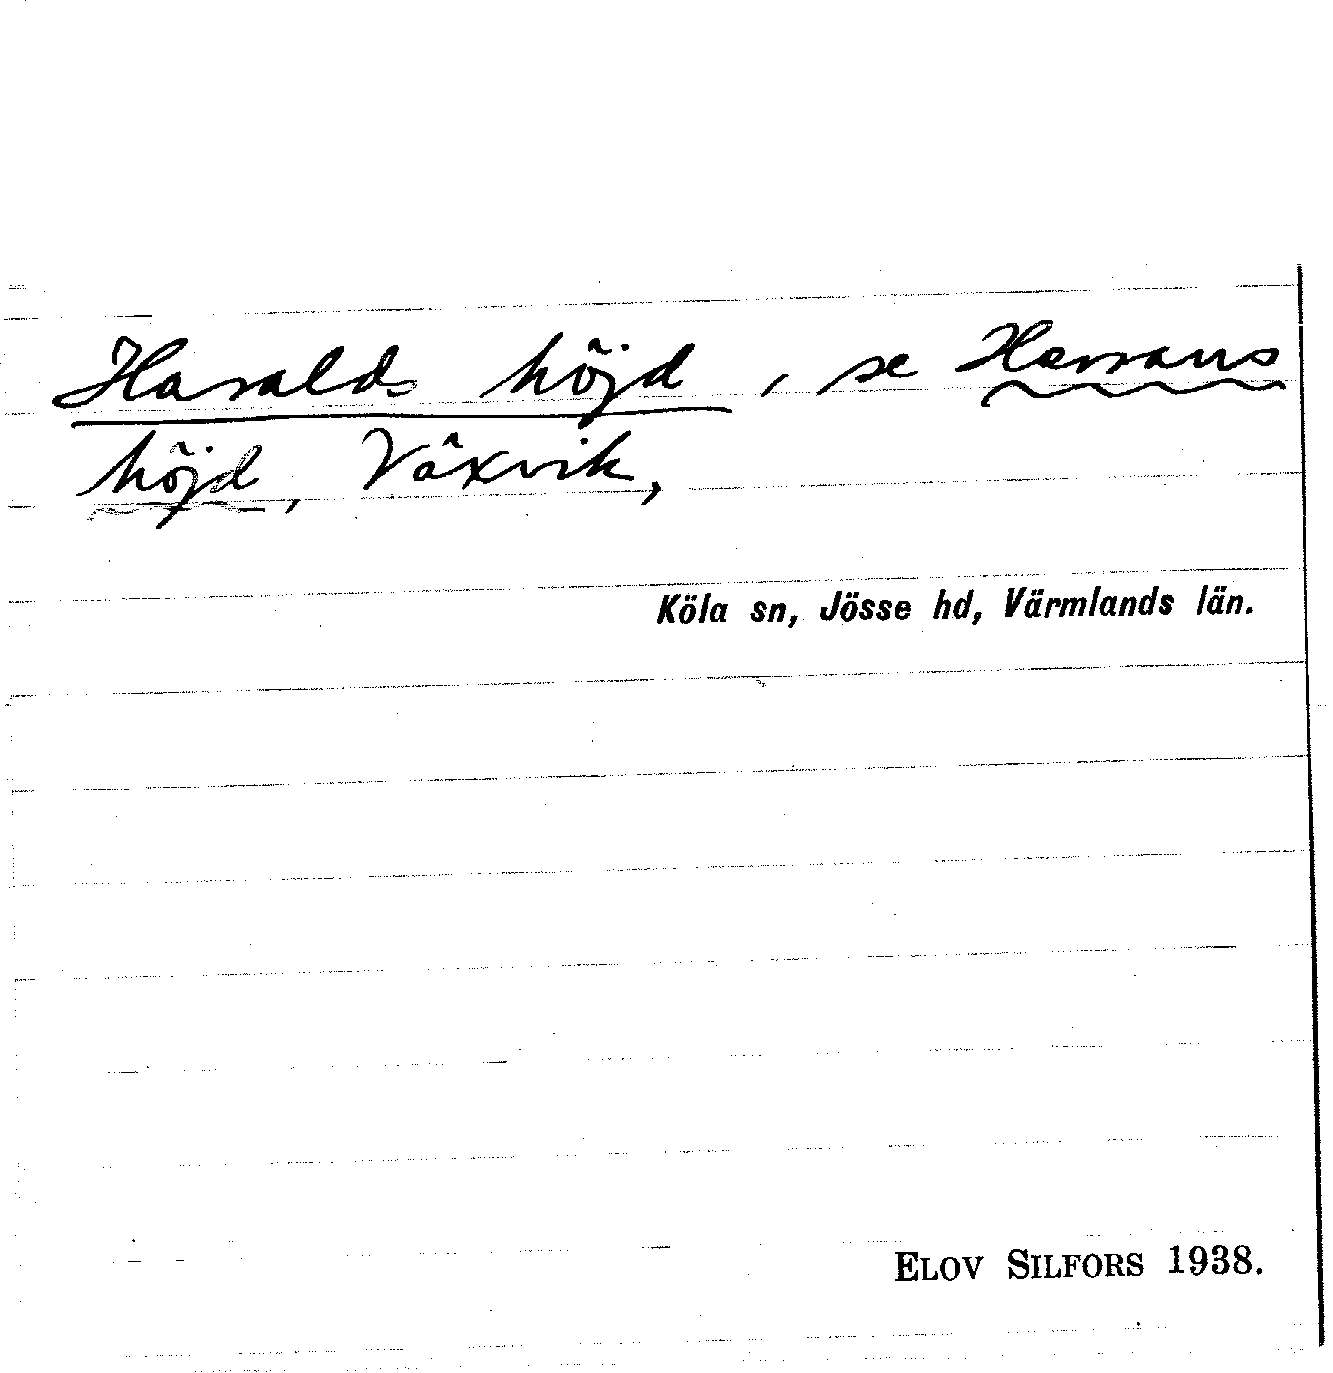 Haralds höjd, se Herrans
höjd, Växvik,
Köla sn, Jösse hd, Värmlands län.
ELOV SILFORS 1938.